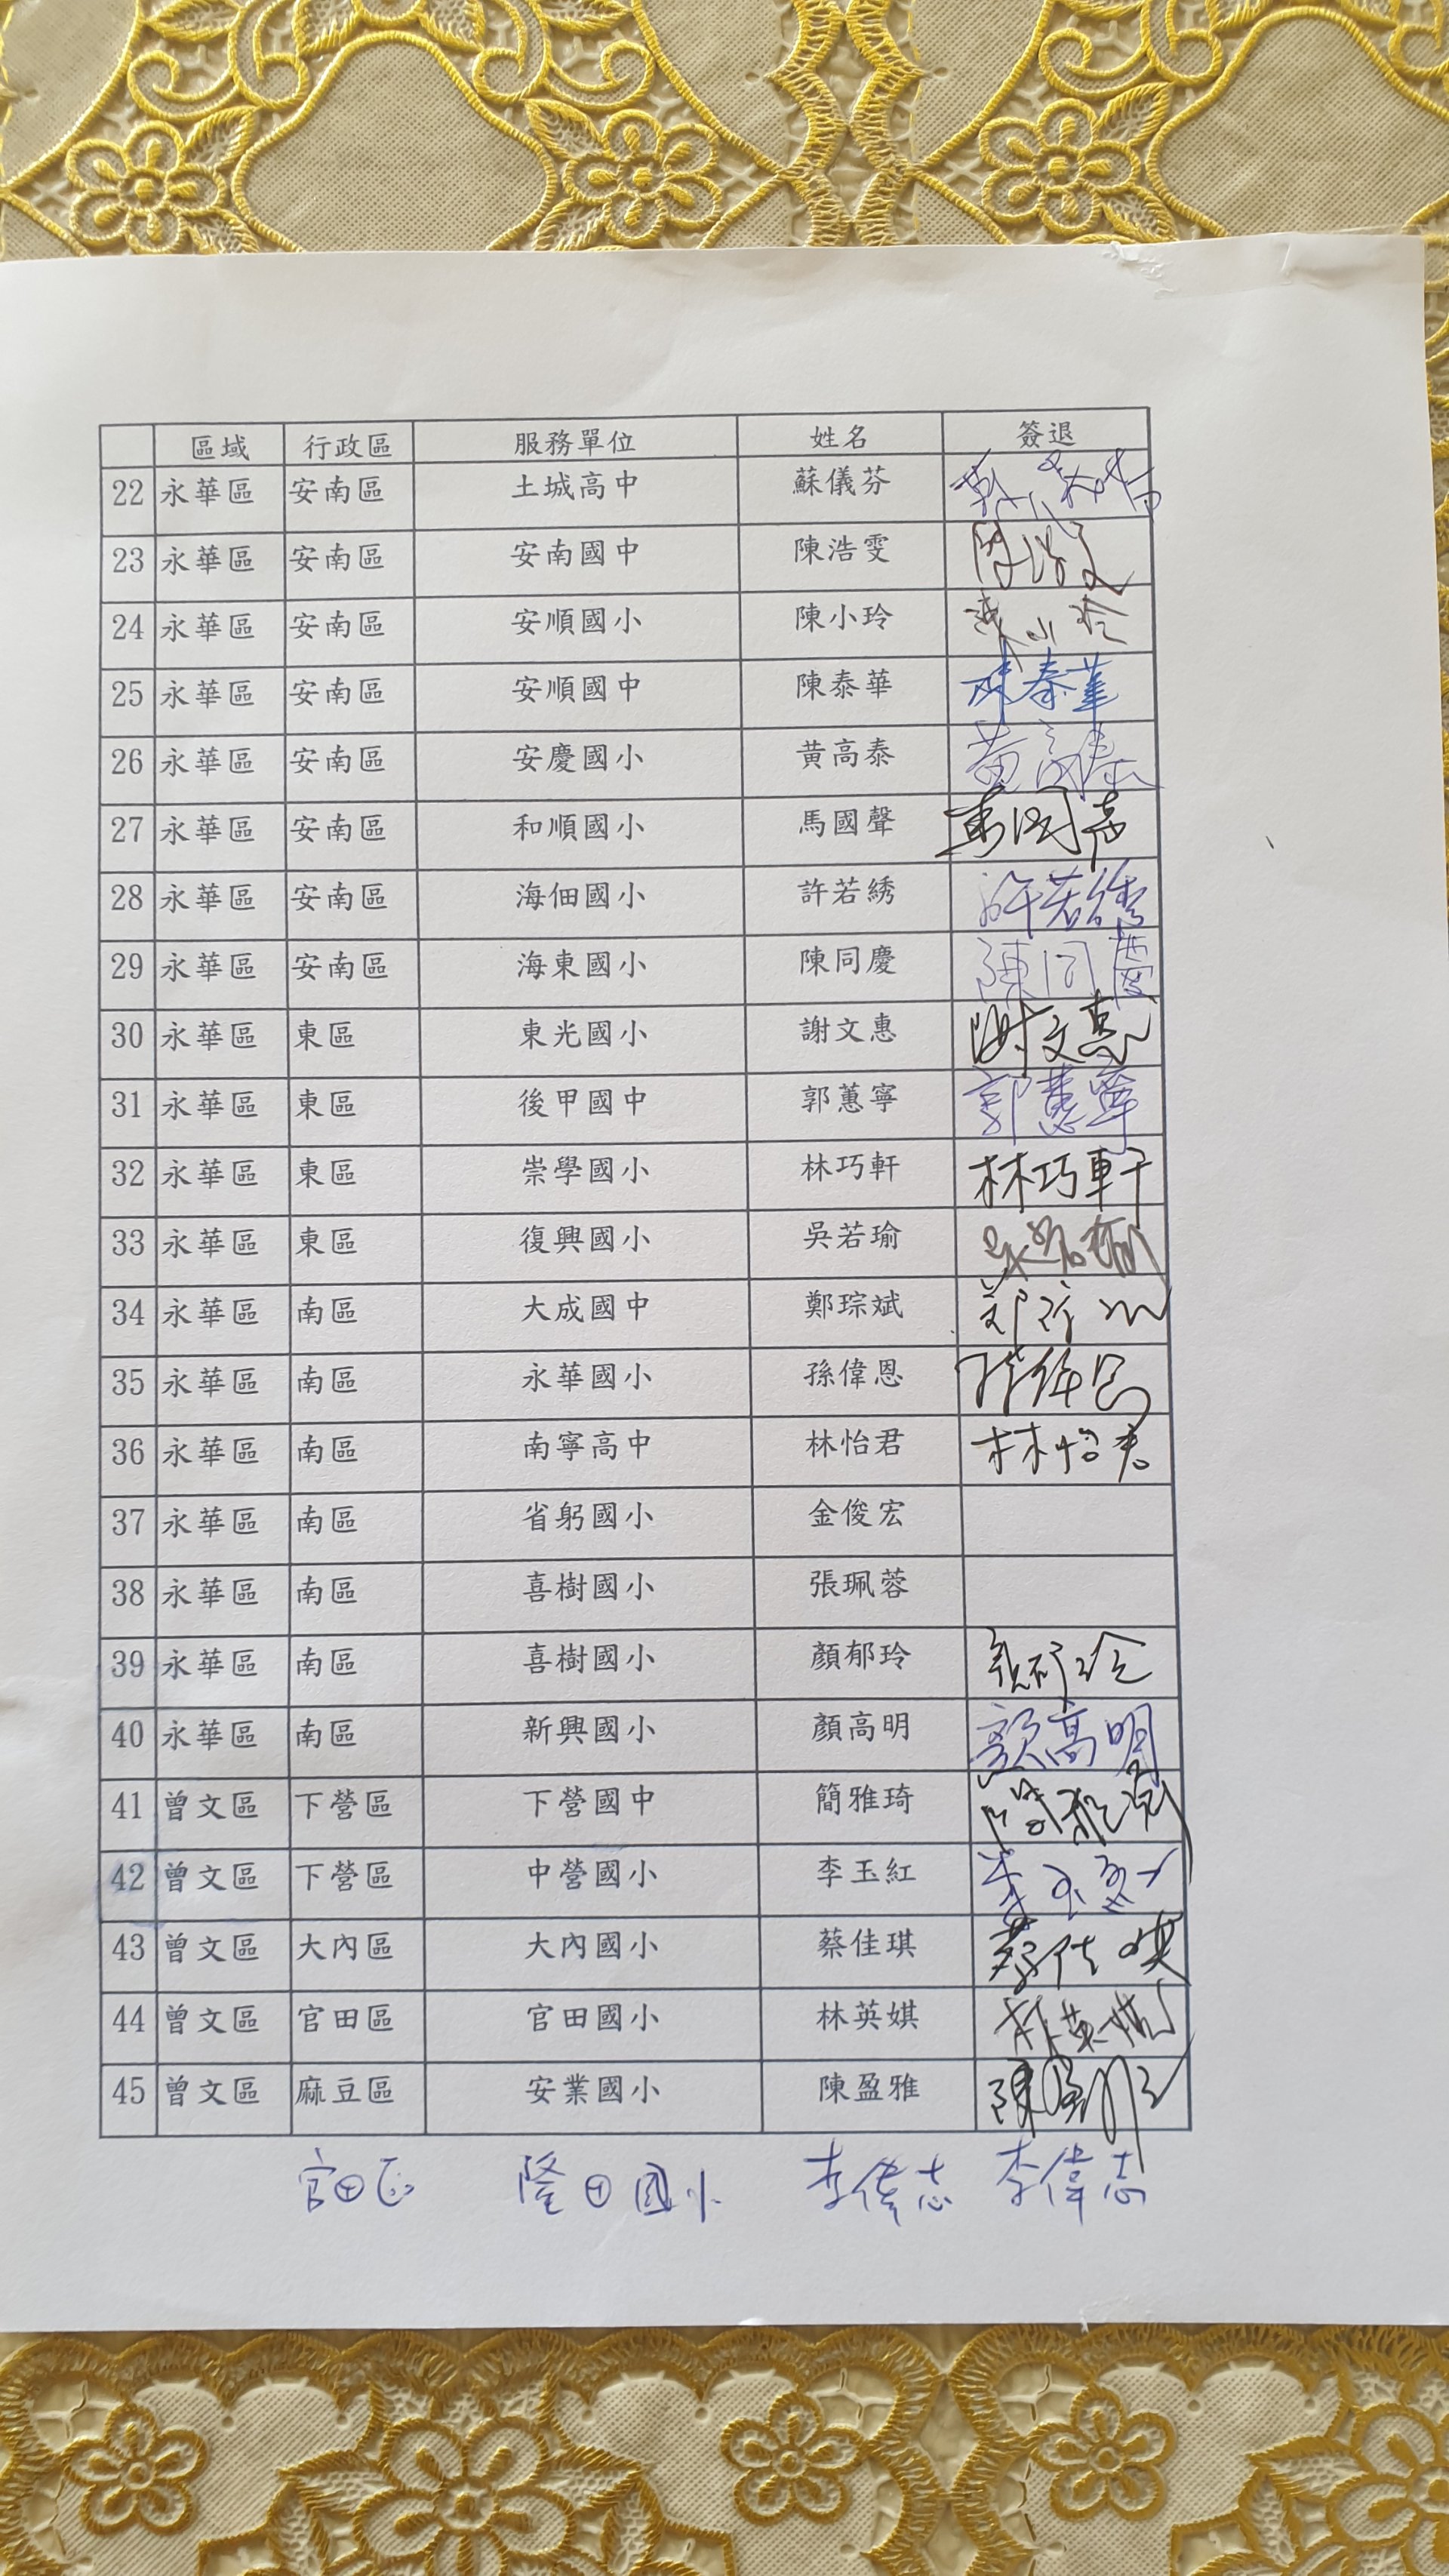 區域 行政區 服務單位 姓名 簽退
22 永華區 安南區 土城高中 蘇儀芬
23 永華區 安南區 安南國中 陳浩雯 陳浩雯
24 永華區 安南區 安順國小 陳小玲 陳小玲
25 永華區 安南區 安順國中 陳泰華 陳泰華
26 永華區 安南區 安慶國小 黃高泰 黃高泰
27 永華區 安南區 和順國小 馬國聲
28 永華區 安南區 海佃國小 許若綉 許若綉
29 永華區 安南區 海東國小 陳同慶 陳同慶
30 永華區 東區 東光國小 謝文惠 謝文惠
31 永華區 東區 後甲國中 郭蕙寧 郭蕙寧
32 永華區 東區 崇學國小 林巧軒 林巧軒
33 永華區 東區 復興國小 吳若瑜 吳若瑜
34 永華區 南區 大成國中 鄭琮斌
35 永華區 南區 永華國小 孫偉恩 孫偉恩
36 永華區 南區 南寧高中 林怡君 林怡君
37 永華區 南區 省躬國小 金俊宏
38 永華區 南區 喜樹國小 張珮蓉
39 永華區 南區 喜樹國小 顏郁玲 顏郁玲
40 永華區 南區 新興國小 顏高明 顏高明
41 曾文區 下營區 下營國中 簡雅琦 簡雅琦
42 曾文區 下營區 中營國小 李玉紅
43 曾文區 大內區 大內國小 蔡佳琪 蔡佳琪
44 曾文區 官田區 官田國小 林英娸 林英娸
45 曾文區 麻豆區 安業國小 陳盈雅 陳盈雅
官田區 隆田國小 李偉志 李偉志